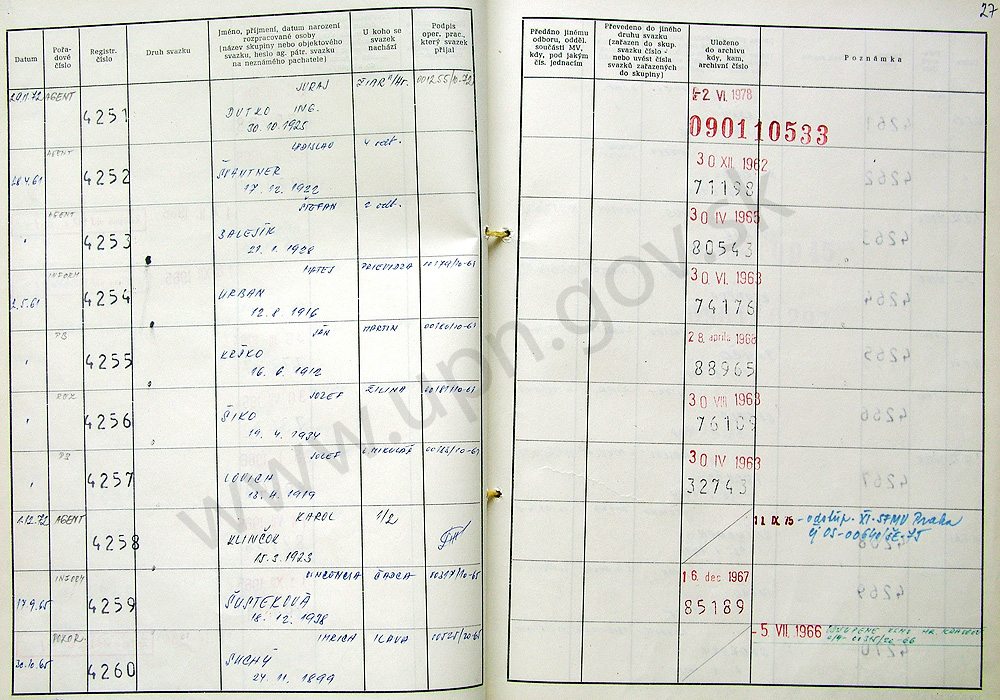 27
Datum
Pořa-
dové
číslo
Registr.
číslo
Druh svazku
Jméno, příjmení, datum narození
rozpracované osoby
(název skupiny nebo objektového
svazku, heslo ag. pátr. svazku
na neznámého pachatele)
U koho se
svazek
nachází
Podpis
oper. prac.,
který svazek
přijal
Předáno jinému
odboru, odděl.
součásti MV,
kdy, pod jakým
čís. jednacím
Převedeno do jiného
druhu svazku
(zařazen do skup.
svazku číslo -
nebo uvést čísla
svazků zařazených
do skupiny)
Uloženo
do archivu
kdy, kam,
archivní číslo
Poznámka
AGENT
4251
JURAJ
DUTKO ING.
30.10.1925
ŽIAR n/Hr.
-2 VI. 1978
090110533
AGENT
28.4.61
4252
LADISLAV
ŠVANTNER
17. 12. 1922
4 odt.
30 XII. 1962
71198
AGENT
"
4253
ŠTEFAN
BALEJÍK
21. 1. 1928
2 odt.
30 IV 1965
80543
INFORM
2.5.61
4254
MATEJ
URBAN
12. 8 1916
PRIEVIDZA
00179/10-61
30 VI. 1963
74176
PB
"
4255
JÁN
KEŠKO
16. 6 1912
MARTIN
00180/10-61
28 aprila 1966
88965
"
4256
JOZEF
ŠIKO
19. 4. 1934
ŽILINA
00181/10-61
30 VIII 1963
76109
PB
"
4257
JOZEF
LOVICH
18. 4. 1919
L MIKULÁŠ
30 IV 1963
32743
1.12.72 AGENT
4258
KAROL
KLINČOK
15. 3. 1923
1/2
11 IX 75 - odstúp. XI. SFMV Praha
čj 05-00640/ŠE-75
INFORM
17.9.65
4259
VINCENCIA
ŠUSTEKOVÁ
18. 12. 1938
ČADCA
00317/10-65
16. dec 1967
85189
30.10.65
4260
IMRICH
SUCHÝ
24. 11. 1899
ILAVA
00525/20-65
- 5. VII. 1966
www.upn.gov.sk